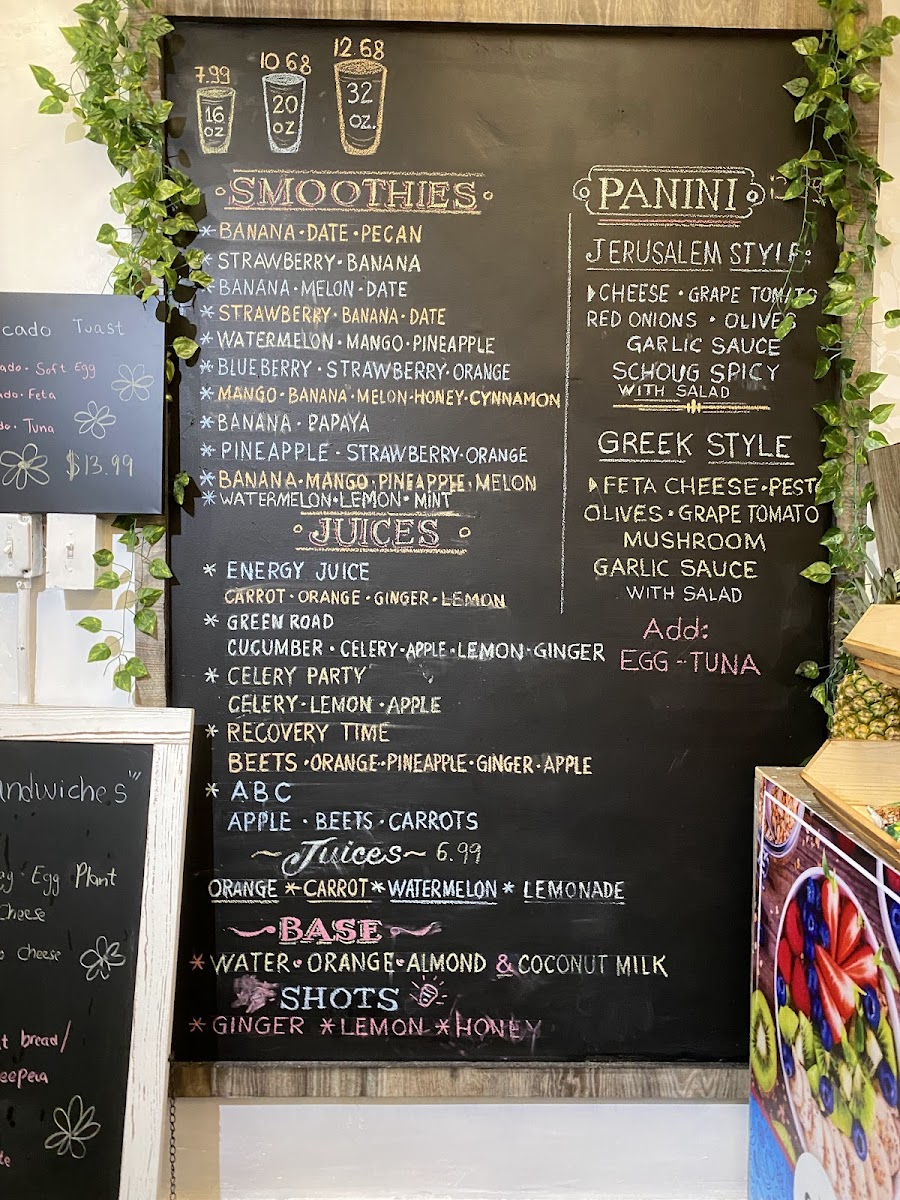 7.99 10.68 12.68
16 OZ 20 OZ 32 OZ.
SMOOTHIES
* BANANA · DATE · PECAN
* STRAWBERRY · BANANA
* BANANA · MELON · DATE
* STRAWBERRY · BANANA · DATE
* WATERMELON · MANGO · PINEAPPLE
* BLUEBERRY · STRAWBERRY · ORANGE
* MANGO · BANANA · MELON · HONEY · CYNNAMON
* BANANA · PAPAYA
* PINEAPPLE · STRAWBERRY · ORANGE
* BANANA · MANGO · PINEAPPLE · MELON
* WATERMELON · LEMON · MINT
JUICES
* ENERGY JUICE
CARROT · ORANGE · GINGER · LEMON
* GREEN ROAD
CUCUMBER · CELERY · APPLE · LEMON · GINGER
* CELERY PARTY
CELERY · LEMON · APPLE
* RECOVERY TIME
BEETS · ORANGE · PINEAPPLE · GINGER · APPLE
* ABC
APPLE · BEETS · CARROTS
~Juices~ 6.99
ORANGE * CARROT * WATERMELON * LEMONADE
BASE
* WATER · ORANGE · ALMOND & COCONUT MILK
SHOTS
* GINGER * LEMON * HONEY
PANINI
JERUSALEM STYLE:
CHEESE · GRAPE TOMATO
RED ONIONS · OLIVES
GARLIC SAUCE
SCHOUG SPICY
WITH SALAD
GREEK STYLE
FETA CHEESE · PEST
OLIVES · GRAPE TOMATO
MUSHROOM
GARLIC SAUCE
WITH SALAD
Add:
EGG - TUNA
cado Toast
ado · Soft Egg
ado · Feta
do · Tuna
$13.99
andwiches"
ay · Egg Plant
Cheese
o cheese
t bread/